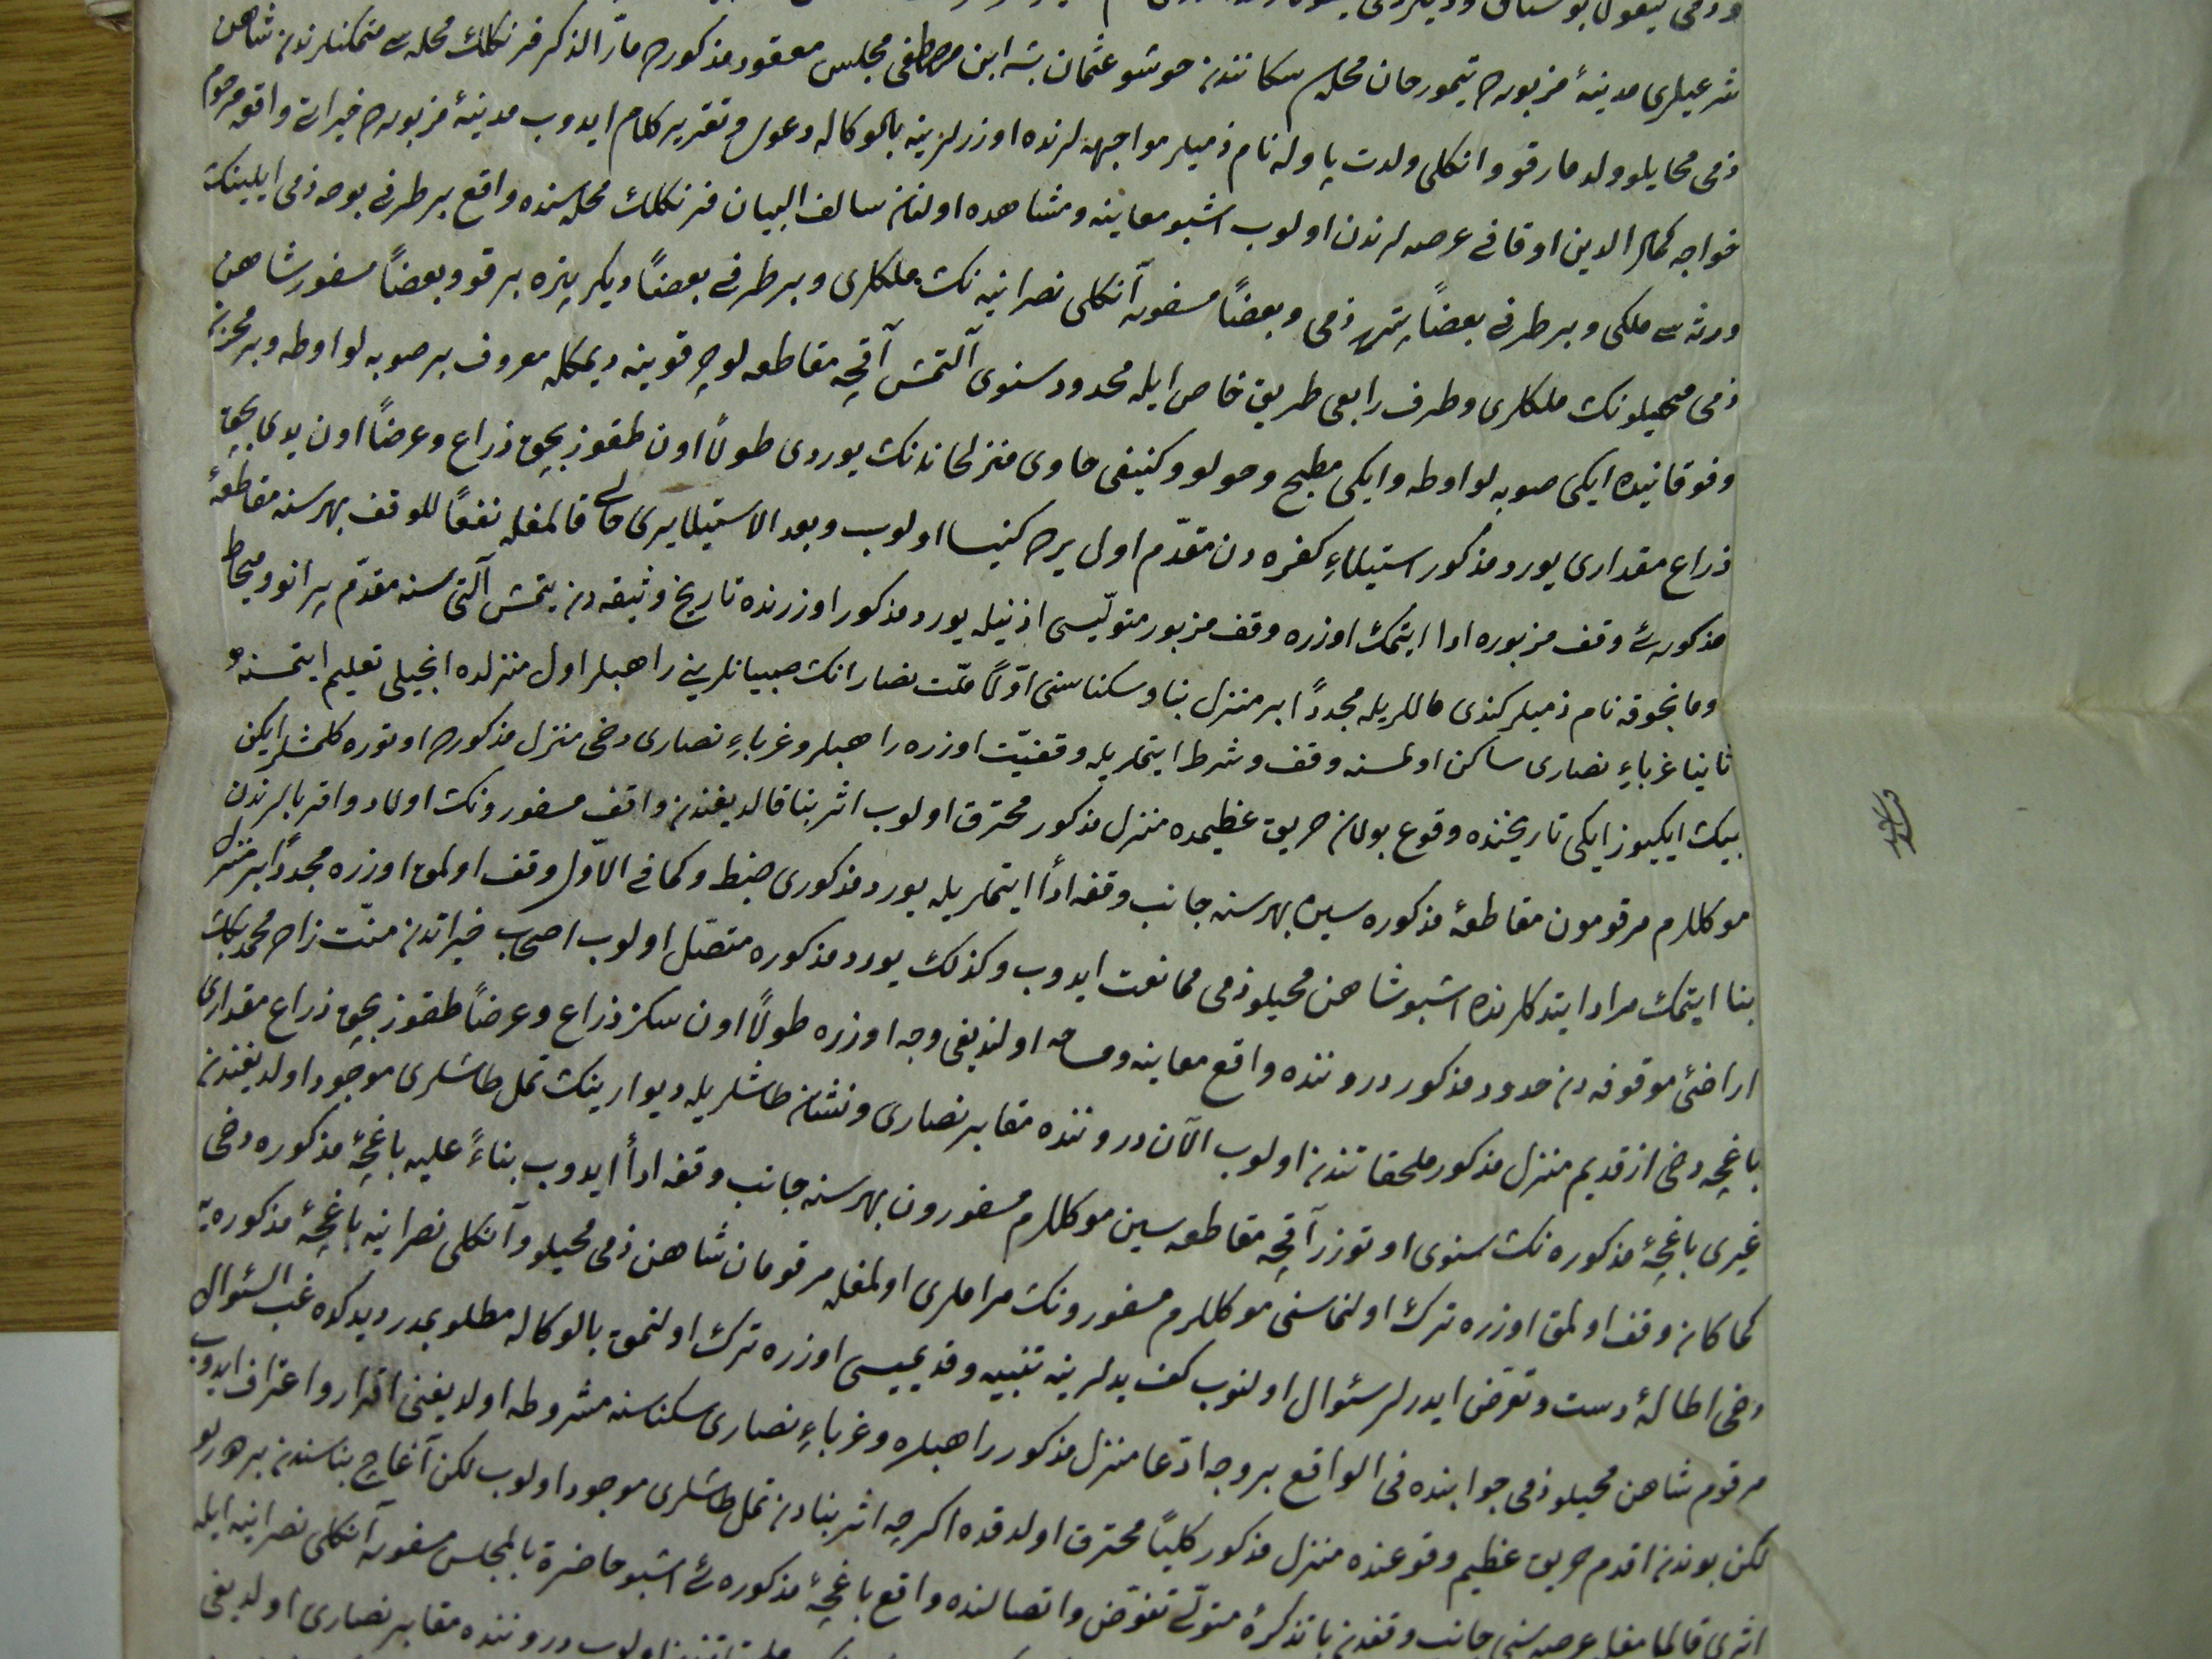 شرعیلری مدینهٔ مزبوره تیمورخان محله‌سی سکانندن عثمان بشه ابن مصطفی مجلس معقود مذکورده مارّ الذکر فرنکلك محله‌سی متمکنلرندن شاهن
ذمی محایلو ولد مارقو و انکلی ولدت پاوله نام ذمیلر مواجهه‌لرنده اوزرلرینه بالوکاله دعوی و تقریر کلام ایدوب مدینهٔ مزبوره‌ده خیراتی واقع مرحوم
خواجه کمال الدین اوقافی عرصه‌لرندن اولوب اشبو معاینه و مشاهده اولنان سالف البیان فرنکلك محله‌سنده واقع بر طرفی بوصه ذمی ایلینك
ورثه‌سی ملکی و بر طرفی بعضاً ذمی و بعضاً مسفوره آنکلی نصرانیه‌نك ملکلری و بر طرفی بعضاً دیکر برقو و بعضاً مسفور شاهن
ذمی محیلونك ملکلری و طرف رابعی طریق خاص ایله محدود سنوی آلتمش آقچه مقاطعه‌لو قوینه دیمکله معروف بر صوبه‌لو اوطه و بر مخزن
و فوقانیده ایکی صوبه‌لو اوطه و ایکی مطبخ و حولو و کنیفی حاوی منزلخانه‌نك یوردی طولاً اون طقوز بچق ذراع و عرضاً اون یدی بچق
ذراع مقداری یورد مذکور استیلاءِ کفره‌دن مقدّم اول یرده کنیسا اولوب و بعد الاستیلا یری خالی قالمغله نفعاً للوقف بهر سنه مقاطعهٔ
مذکوره‌یی وقف مزبوره ادا ایتمك اوزره وقف مزبور متولیسی اذنیله یورد مذکور اوزرنده تاریخ وثیقه‌دن یتمش آلتی سنه مقدّم پرانو و میحاط
و مانجوقه نام ذمیلر کندی ماللریله مجدداً بر منزل بنا و سکناسنی اوّلاً ملّت نصارانك صبیانلرینی راهبلر اول منزلده انجیلی تعلیم ایتمسنه و
ثانیا غرباءِ نصاری ساکن اولمسنه وقف و شرط ایتملریله وقفیّت اوزره راهبلر و غرباءِ نصاری دخی منزل مذکورده اوتوره کلمشلر ایکن
بیك ایکیوز ایکی تاریخنده وقوع بولان حریق عظیمده منزل مذکور محترق اولوب اثر بنا قالدیغندن واقف مسفورونك اولاد و اقربالرندن
موکللرم مرقومون مقاطعهٔ مذکوره‌سین بهر سنه جانب وقفه ادأ ایتملریله یورد مذکوری ضبط و کما فی الاوّل وقف اولمق اوزره مجدداً بر منزل
بنا ایتمك مراد ایتدکلرنده اشبو شاهن محیلو ذمی ممانعت ایدوب و کذلك یورد مذکوره متصل اولوب اصحاب خیراتدن منّت زاده محمد بك
اراضئ موقوفه‌دن حدود مذکور دروننده واقع معاینه و مساحه اولندیغی وجه اوزره طولاً اون سکز ذراع و عرضاً طقوز بچق ذراع مقداری
باغچه دخی از قدیم منزل مذکور ملحقاتندن اولوب الآن دروننده مقابر نصاری و نشان طاشلریله دیوارینك تمل طاشلری موجود اولدیغندن
غیری باغچهٔ مذکوره‌نك سنوی اوتوزر آقچه مقاطعه‌سین موکللرم مسفورون بهر سنه جانب وقفه ادأ ایدوب بناءً علیه باغچهٔ مذکوره دخی
کما کان وقف اولمق اوزره ترك اولنماسنی موکللرم مسفورونك مراملری اولمغله مرقومان شاهن ذمی محیلو و آنکلی نصرانیه باغچهٔ مذکوره‌یه
دخی اطالهٔ دست و تعرّض ایدرلر سئوال اولنوب کف یدلرینه تنبیه و قدیمیسی اوزره ترك اولنمق بالوکاله مطلوبمدر دیدکده غبّ السئوال
مرقوم شاهن محیلو ذمی جوابنده فی الواقع بر وجه ادّعا منزل مذکور راهبلره و غرباءِ نصاری سکناسنه مشروطه اولدیغنی اقرار و اعتراف ایدوب
لکن بوندن اقدم حریق عظیم وقوعنده منزل مذکور کلیاً محترق اولدقده اکرچه اثر بنادن تمل طاشلری موجود اولوب لکن آغاج بناسندن بر
اثری قالمامغله عرصه‌سنی جانب وقفدن با تذکرهٔ متولّی تفوّض و اتصالنده واقع باغچهٔ مذکوره‌یی اشبو حاضرة بالمجلس مسفوره آنکلی نصرانیه ایله
اولوب دروننده مقابر نصاری اولدیغی